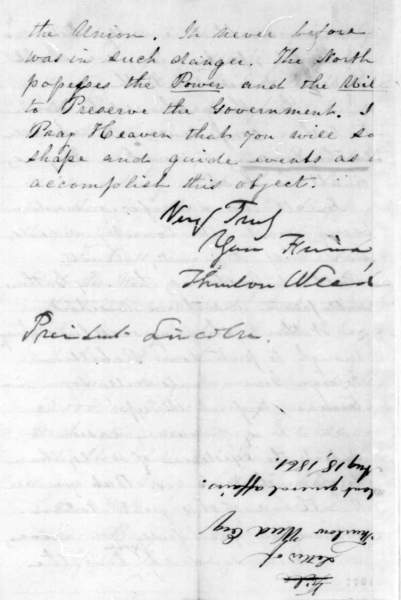 the Union. It never before
was in such danger. The North
posesses the Power and the Will
to Preserve the Government. I
Pray Heaven that you will so
shape and guide events as
accomplish this object.
Very Truly
Your Friend
Thurlow Weed
President Lincoln.
File
Letter of
Thurlow Weed Esq
about general affairs.
Aug 18, 1861.